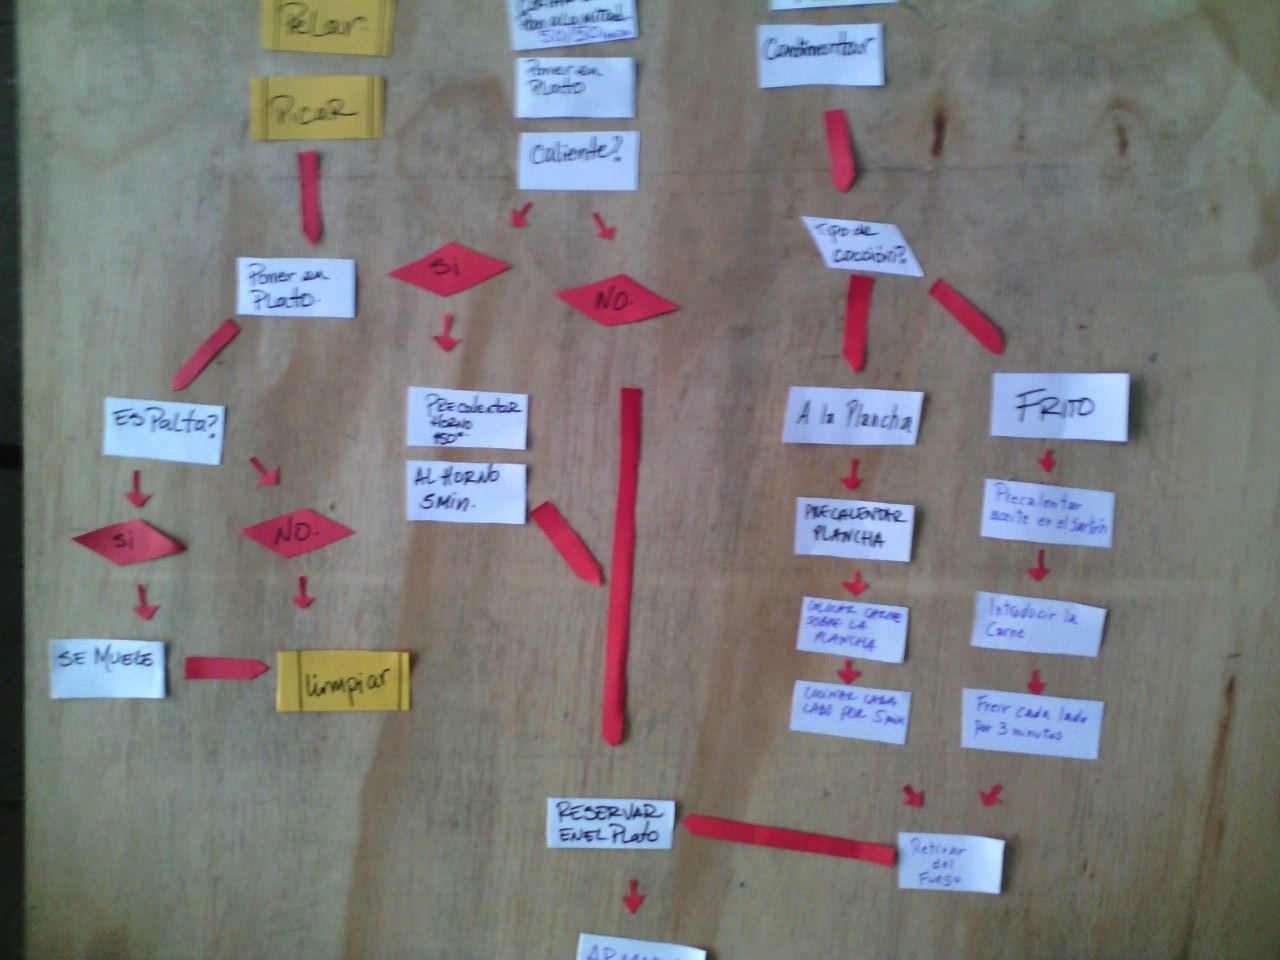 Pelar.
Picar
Poner en
Plato.
Es Palta?
Si
NO.
SE MUELE
limpiar
50/50
Poner en
Plato
Caliente?
Si
NO.
PRECalentar
HORNO
150°
AL HORNO
5 Min.
RESERVAR
EN EL Plato
Condimentar
Tipo de
cocción?
A la Plancha
PRECALENTAR
PLANCHA
COLOCAR CARNE
SOBRE LA
PLANCHA
COCINAR CADA
LADO POR 5 min
FRITO
Precalentar
aceite en el Sartén
Introducir la
Carne
Freir cada lado
por 3 minutos
Retirar
del
Fuego